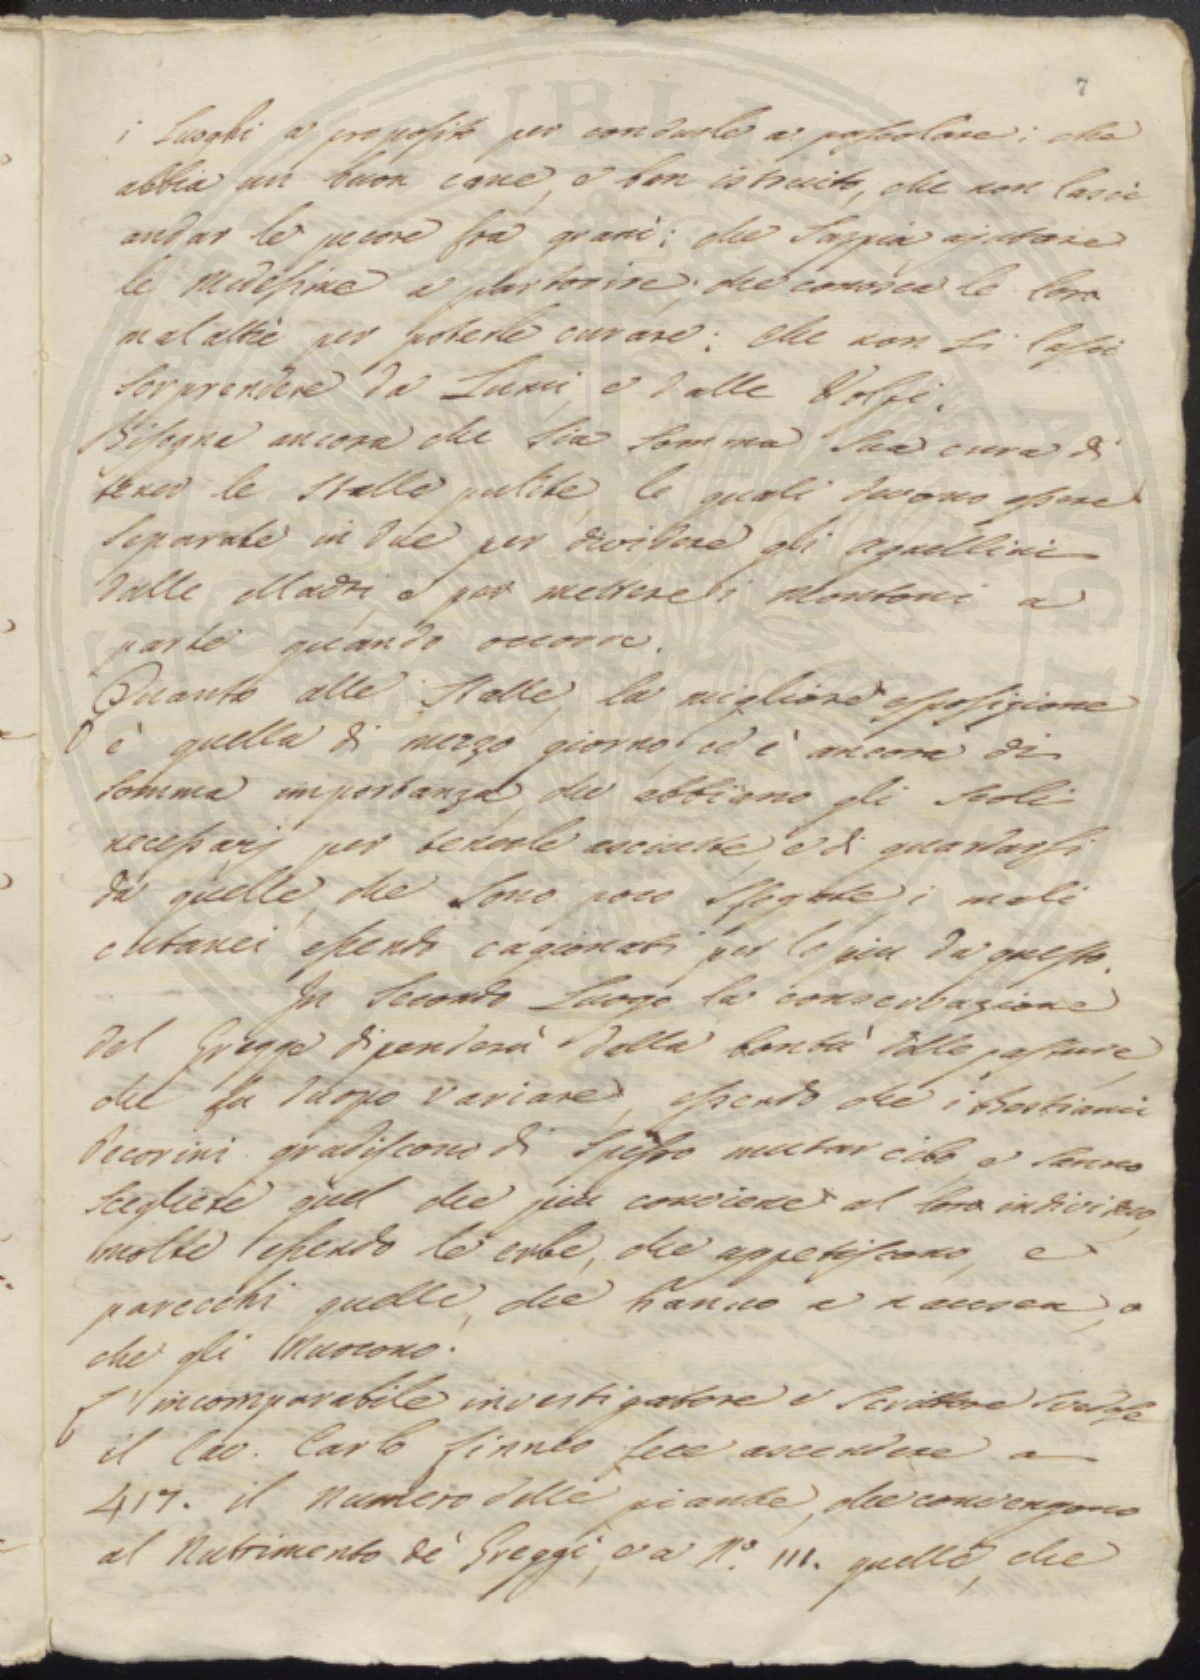 7
i Luoghi a proposito per condurle a' pascolare: che
abbia un buon cane, e ben istruito, che non lasci
andar le pecore fra grani; che sappia ajutare
le medesime a partorire; che conosca le loro
malattie per poterle curare; che non si lasci
sorprendere da Lupi, e dalle Volpi.
Bisogna ancora che sia somma sua cura di
tener le stalle pulite, le quali devono essere
separate in due per dividere gli agnellini
dalle Madri, e per mettere i montoni a
parte quando occorre.
Quanto alle Stalle, la migliore esposizione
è quella di mezzo giorno, ed è ancora di
somma importanza che abbiano gli scoli
necessarj per tenerle asciutte, e di guardarsi
da quelle, che sono poco sfogate, i mali
cutanei essendo cagionati per lo piu da questo.
In Secondo Luogo la conservazione
del Gregge dipenderà dalla bontà delle pasture,
che fa duopo variare, essendo che i Bestiami
Pecorini gradiscono di spesso mutar cibo e sanno
scegliere quel che piu conviene al loro individuo,
molte essendo le erbe, che appetiscono, e
parecchi quelle, che hanno a nausea, o
che gli nuocono.
L'incomparabile investigatore e Scrittore Svedese
il Cav. Carlo Linneo fece ascendere a
417. il numero delle piante, che convengono
al Nutrimento de' Greggi, e a N.º 111. quelle, che